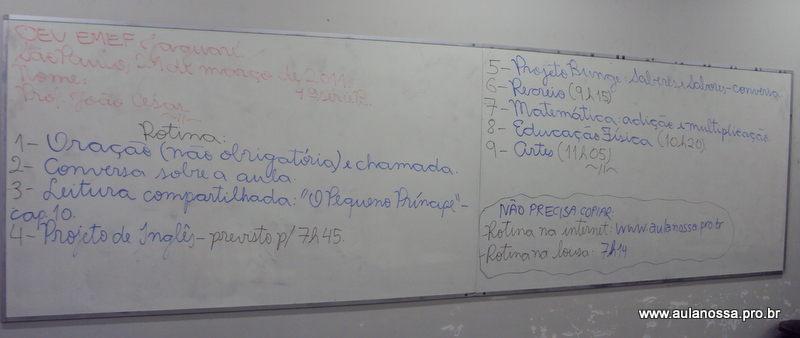 CEU EMEF Jaguaré
São Paulo, 29 de março de 2011.
Nome:
Prof. João César
Rotina:
1- Oração (não obrigatória) e chamada.
2- Conversa sobre a aula.
3- Leitura compartilhada: "O Pequeno Príncipe"-
cap. 10.
4- Projeto de Inglês - previsto p/ 7h45.
5- Projeto Bunge: Saberes e Sabores - conversa
6- Recreio (9h15)
7- Matemática: adição e multiplicação
8- Educação Física (10h20)
9- Artes (11h05)
NÃO PRECISA COPIAR:
-Rotina na internet: www.aulanossa.pro.br
-Rotina na lousa: 7h14
www.aulanossa.pro.br